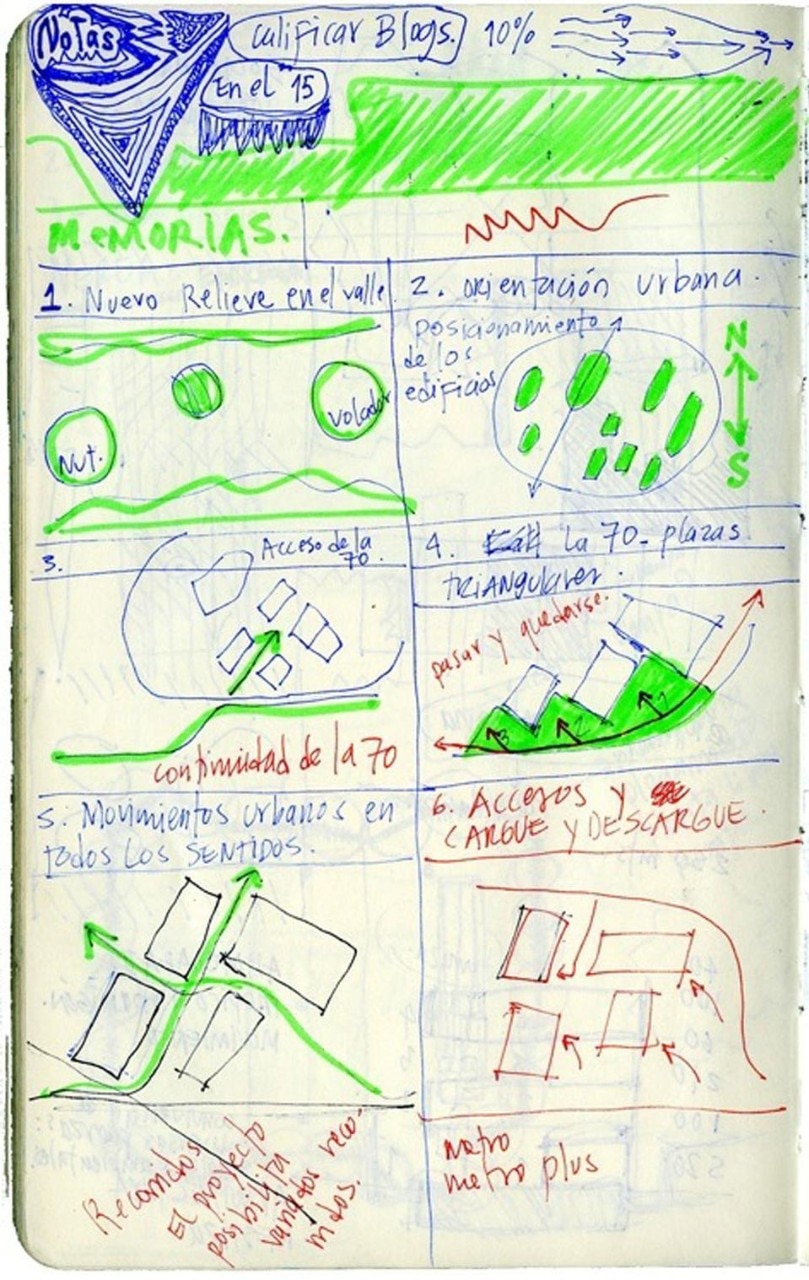 NOTAS
Calificar Blogs. 10%
En el 15
MEMORIAS.
1. Nuevo Relieve en el valle
Nut.
volador
2. orientación urbana.
Posicionamiento
de los
edificios
N
S
3.
Acceso de la
70.
continuidad de la 70
4. La 70- plazas
TRIANgulares.
pasar y quedarse.
3
2
1
5. Movimientos urbanos en
todos los SENTIDOS.
Recorridos
El proyecto
posibilita
variados reco-
rridos.
6. ACCESOS Y
CARGUE Y DESCARGUE.
metro
metro plus